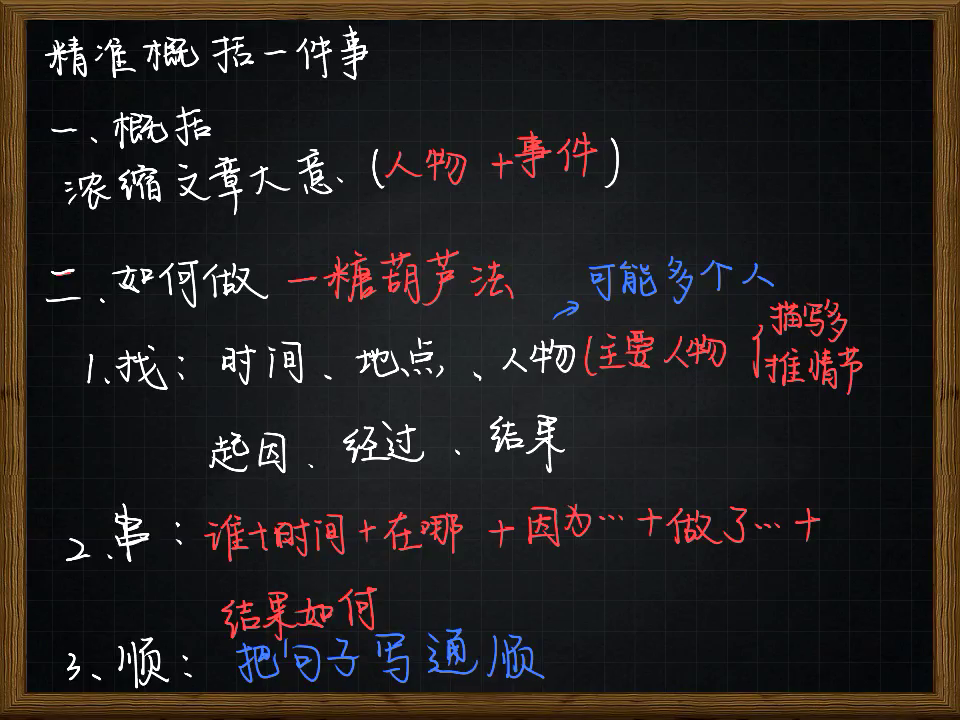 精准概括一件事
一、概括
浓缩文章大意、(人物+事件)
二、如何做 一糖葫芦法
可能多个人
1、找：时间、地点、人物(主要人物{描写多
推情节
起因、经过、结果
2、串：谁+时间+在哪+因为…+做了…+
结果如何
3、顺：把句子写通顺